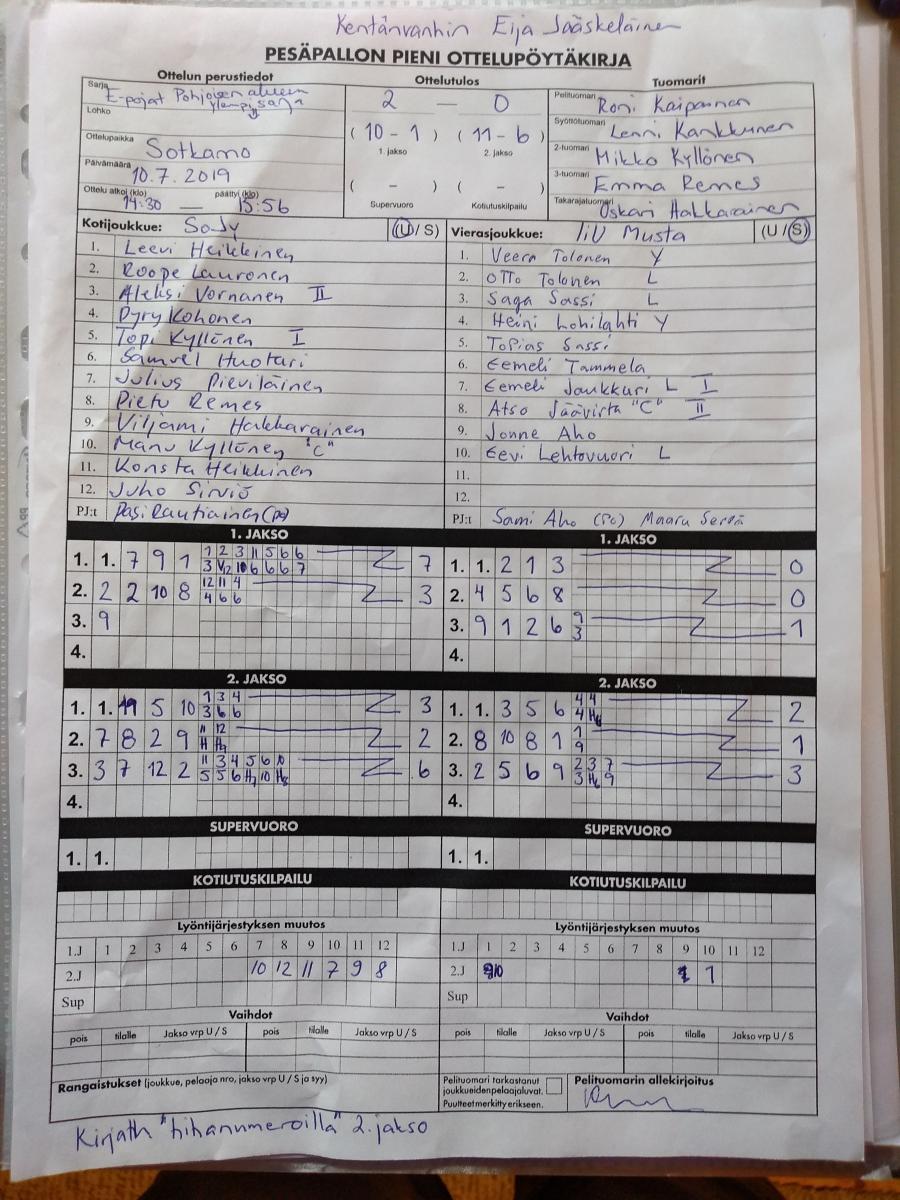 Kentänvanhin Eija Jääskeläinen
PESÄPALLON PIENI OTTELUPÖYTÄKIRJA
Ottelun perustiedot
Ottelutulos
Tuomarit
Sarja E-pojat Pohjoisen alueen
ylempi sarja
Lohko
Ottelupaikka Sotkamo
Päivämäärä 10.7.2019
Ottelu alkoi (klo) 14:30 — päättyi (klo) 15:56
2 — 0
(10 - 1) (11 - 6)
1. jakso 2. jakso
( - ) ( - )
Supervuoro Kotiutuskilpailu
Pelituomari Roni Kaipainen
Syöttötuomari Lenni Kankkunen
2-tuomari Mikko Kyllönen
3-tuomari Emma Remes
Takarajatuomari Oskari Hakkarainen
Kotijoukkue: SoJy (U / S)
1. Leevi Heikkinen
2. Roope Lauronen
3. Aleksi Vornanen II
4. Pyry Kohonen
5. Topi Kyllönen I
6. Samuel Huotari
7. Julius Pieviläinen
8. Pietu Remes
9. Viljami Hakkarainen
10. Manu Kyllönen "C"
11. Konsta Heikkinen
12. Juho Sirviö
PJ:t Pasi Rautiainen (pj)
Vierasjoukkue: TiU Musta (U / S)
1. Veera Tolonen Y
2. Otto Tolonen L
3. Saga Sassi L
4. Heini Lohilahti Y
5. Topias Sassi
6. Eemeli Tammela
7. Eemeli Jaukkuri L I
8. Atso Jäävirta "C" II
9. Jonne Aho
10. Eevi Lehtovuori L
11.
12.
PJ:t Sami Aho (PJ) Maaru
1. JAKSO
1. 1. 7 9 1 1 2 3 11 5 6 6 7
2. 2 2 10 8 12 11 4 3
4 6 6
3. 9
4.
1. JAKSO
1. 1. 2 1 3 0
2. 4 5 6 8 0
3. 9 1 2 6 9 1
3
4.
2. JAKSO
1. 1. 11 5 10 1 3 4 3
3 6 6
2. 7 8 2 9 11 12 2
3. 3 7 12 2 11 3 4 5 6 10 6
4.
2. JAKSO
1. 1. 3 5 6 4 4 2
2. 8 10 8 1 1 1
9
3. 2 5 6 9 2 3 7 3
4.
SUPERVUORO
1. 1.
SUPERVUORO
1. 1.
KOTIUTUSKILPAILU
KOTIUTUSKILPAILU
Lyöntijärjestyksen muutos
1.J 1 2 3 4 5 6 7 8 9 10 11 12
2.J 10 12 11 7 9 8
Sup
Lyöntijärjestyksen muutos
1.J 1 2 3 4 5 6 7 8 9 10 11 12
2.J 10 1
Sup
Vaihdot
pois tilalle Jakso vrp U / S pois tilalle Jakso vrp U / S
Vaihdot
pois tilalle Jakso vrp U / S pois tilalle Jakso vrp U / S
Rangaistukset (joukkue, pelaaja nro, jakso vrp U / S ja syy)
Pelituomari tarkastanut
joukkueidenpelaajaluvat.
Puutteetmerkitty erikseen.
Pelituomarin allekirjoitus
Kirjattu "hihanumeroilla" 2. jakso